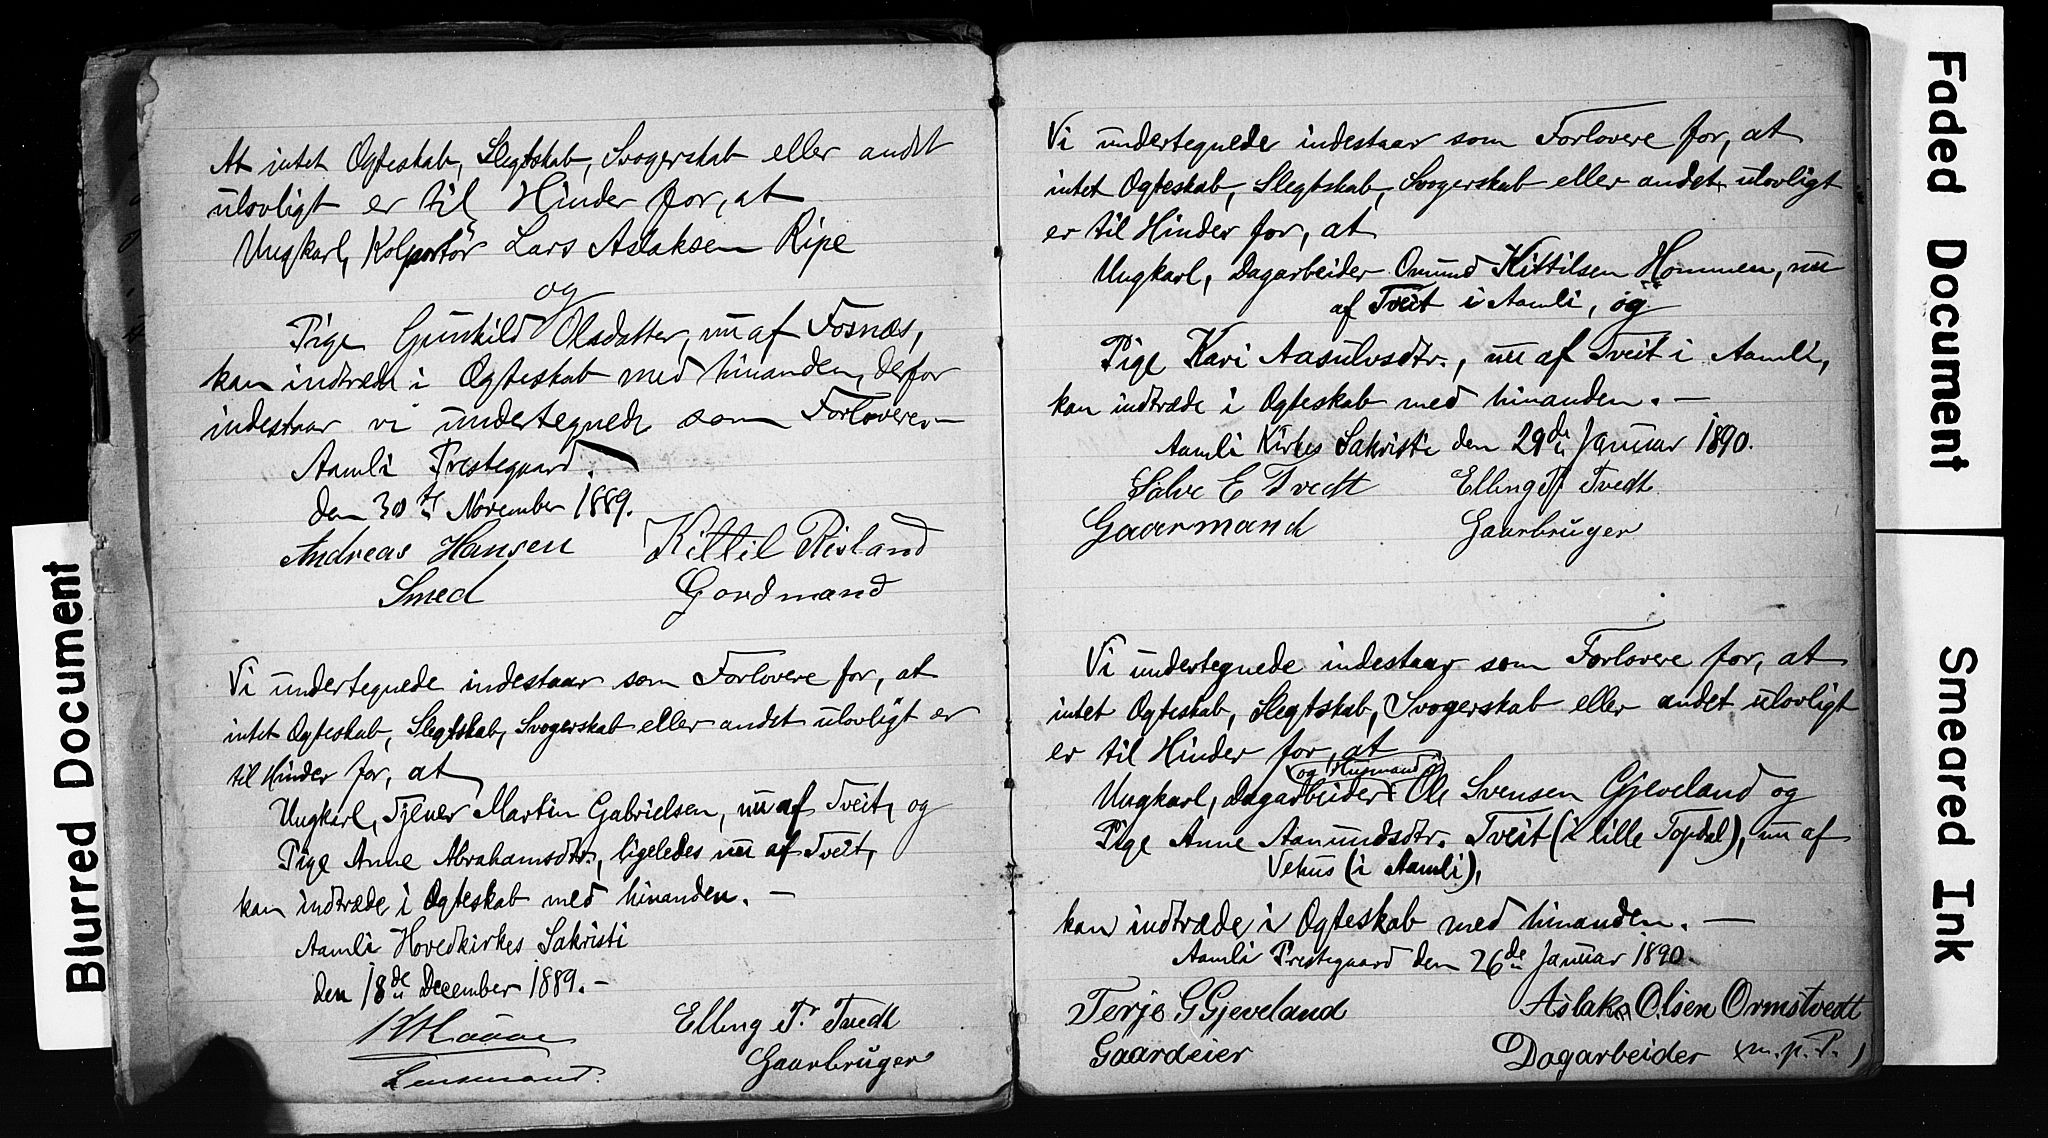 At intet Ogteskab, Slegtskab, Svogerskab eller andet
ulovligt er til Hinder for, at
Ungkarl, Kolportör Lars Aslaksen Ripe
og
Pige Gunhild Olsdatter, nu af Fosnæs,
kan indtræde i Ogteskab med hinanden, derfor
indestaar vi undertegnede som Forlovere.—
Aamli Prestegaard.
den 30te November 1889.
Andreas Hansen Kittil Risland
Smed Gordmand
Vi undertegnede indestaar som Forlovere for, at
intet Ogteskab, Slegtskab, Svogerskab eller andet ulovligt er
til Hinder for, at
Ungkarl, Tjener Martin Gabrielsen, nu af Tveit, og
Pige Anne Abrahamsdtr., ligeledes nu af Tveit,
kan indtræde i Ogteskab med hinanden. —
Aamli Hovedkirkes Sakristi
den 18de December 1889. —
Elling T. Tvedt
Lensmand. Gaarbruger
Vi undertegnede indestaar som Forlovere for, at
intet Ogteskab, Slegtskab, Svogerskab eller andet ulovligt
er til Hinder for, at
Ungkarl, Dagarbeider Omund Kittilsen Hommen, nu
af Tveit i Aamli, og
Pige Kari Aasulvsdtr., nu af Tveit i Aamli,
kan indtræde i Ogteskab med hinanden. —
Aamli Kirkes Sakristi den 29de Januar 1890.
Salve E Tvedt Elling T Tvedt
Gaarmand Gaarbruger
Vi undertegnede indestaar som Forlovere for, at
intet Ogteskab, Slegtskab, Svogerskab eller andet ulovligt
er til Hinder for, at
og Husmand
Ungkarl, Dagarbeider Ole Svensen Gjeveland og
Pige Anne Aamundsdtr. Tveit (i lille Topdal), nu af
Vehus (i Aamli),
kan indtræde i Ogteskab med hinanden. —
Aamli Prestegaard den 26de Januar 1890.
Terje G Gjeveland Aslak Olsen Ormstvedt
Gaardeier Dagarbeider (m. p. P.)
Blurred Document
Faded Document
Smeared Ink